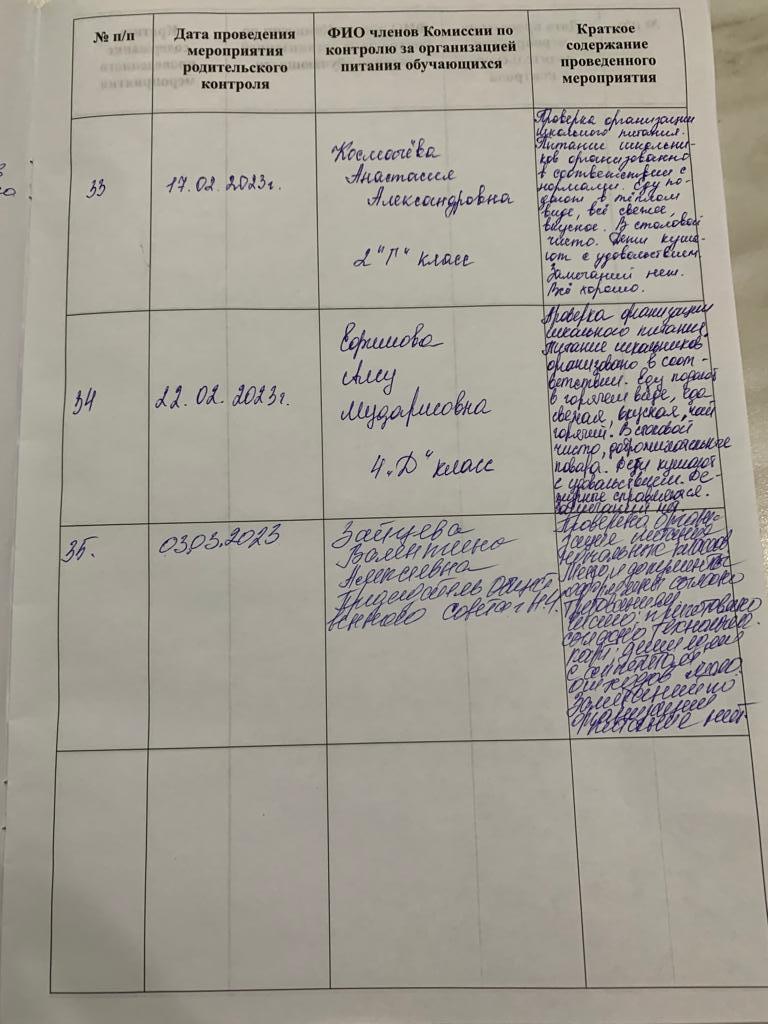 № п/п
Дата проведения
мероприятия
родительского
контроля
ФИО членов Комиссии по
контролю за организацией
питания обучающихся
Краткое
содержание
проведенного
мероприятия
33
17.02.2023г.
Анастасия
Александровна
2 "Г" класс
Проверка организации
школьного питания.
Питание школьни-
ков организованно
в соответствии с
нормами. Еду по-
дают в тёплом
виде, всё свежее,
вкусное. В столовой
чисто. Дети куша-
ют с удовольствием.
Замечаний нет.
Всё хорошо.
34
22.02.2023г.
Ефимова
Алсу
Мударисовна
4 "Д" класс
Проверка организации
школьного питания.
Питание школьников
организовано в соот-
ветствии. Еду подают
в горячем виде, еда
свежая, вкусная, чай
горячий. В столовой
чисто, доброжелательные
повара. Дети кушают
с удовольствием. Де-
журные справляются.
Замечаний
35.
03.03.2023
Зайцева
Валентина
Алексеевна
Председатель
совета г Н.Ч.
Проверка органи-
зации питания
начальных классов
Меню, документы
требованиям
с аппетитом,
отходов мало.
Замечаний по
организации
питания нет.